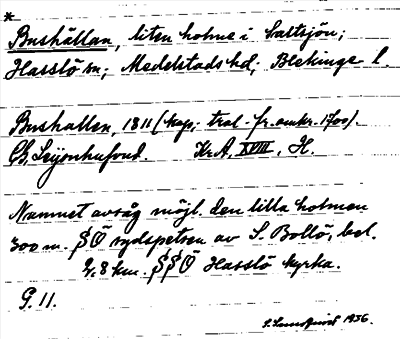 *
Bushållan, liten holme i Saltsjön;
Hasslö sn; Medelstads hd; Blekinge l.
Bushallen, 1811 (kop. tral. fr. omkr. 1700).
Ch. Leijonhufvud. Kr A, XVIII, H.
Namnet avsåg möjl. den lilla holmen
300 m. SÖ sydspetsen av S. Bollö, bel.
2,8 km. SSÖ Hasslö kyrka.
G. 11.
S. Lundquist 1936.